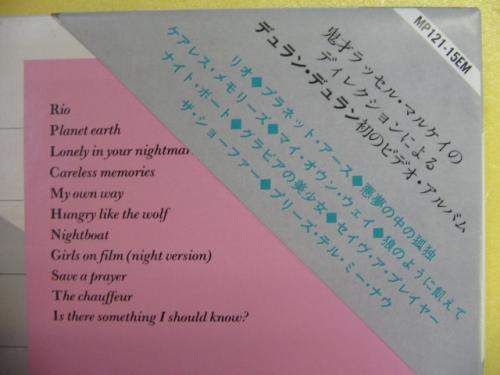 MP121-15EM
鬼才ラッセル・マルケイの
ディレクションによる
デュラン・デュラン初のビデオ・アルバム
リオ◆プラネット・アース◆悪夢の中の孤独
ケアレス・メモリーズ◆マイ・オウン・ウェイ◆狼のように飢えて
ナイト・ボート◆グラビアの美少女◆セイヴ・ア・プレイヤー
ザ・ショーファー◆プリーズ・テル・ミー・ナウ
Rio
Planet earth
Lonely in your nightmar
Careless memories
My own way
Hungry like the wolf
Nightboat
Girls on film (night version)
Save a prayer
The chauffeur
Is there something I should know?